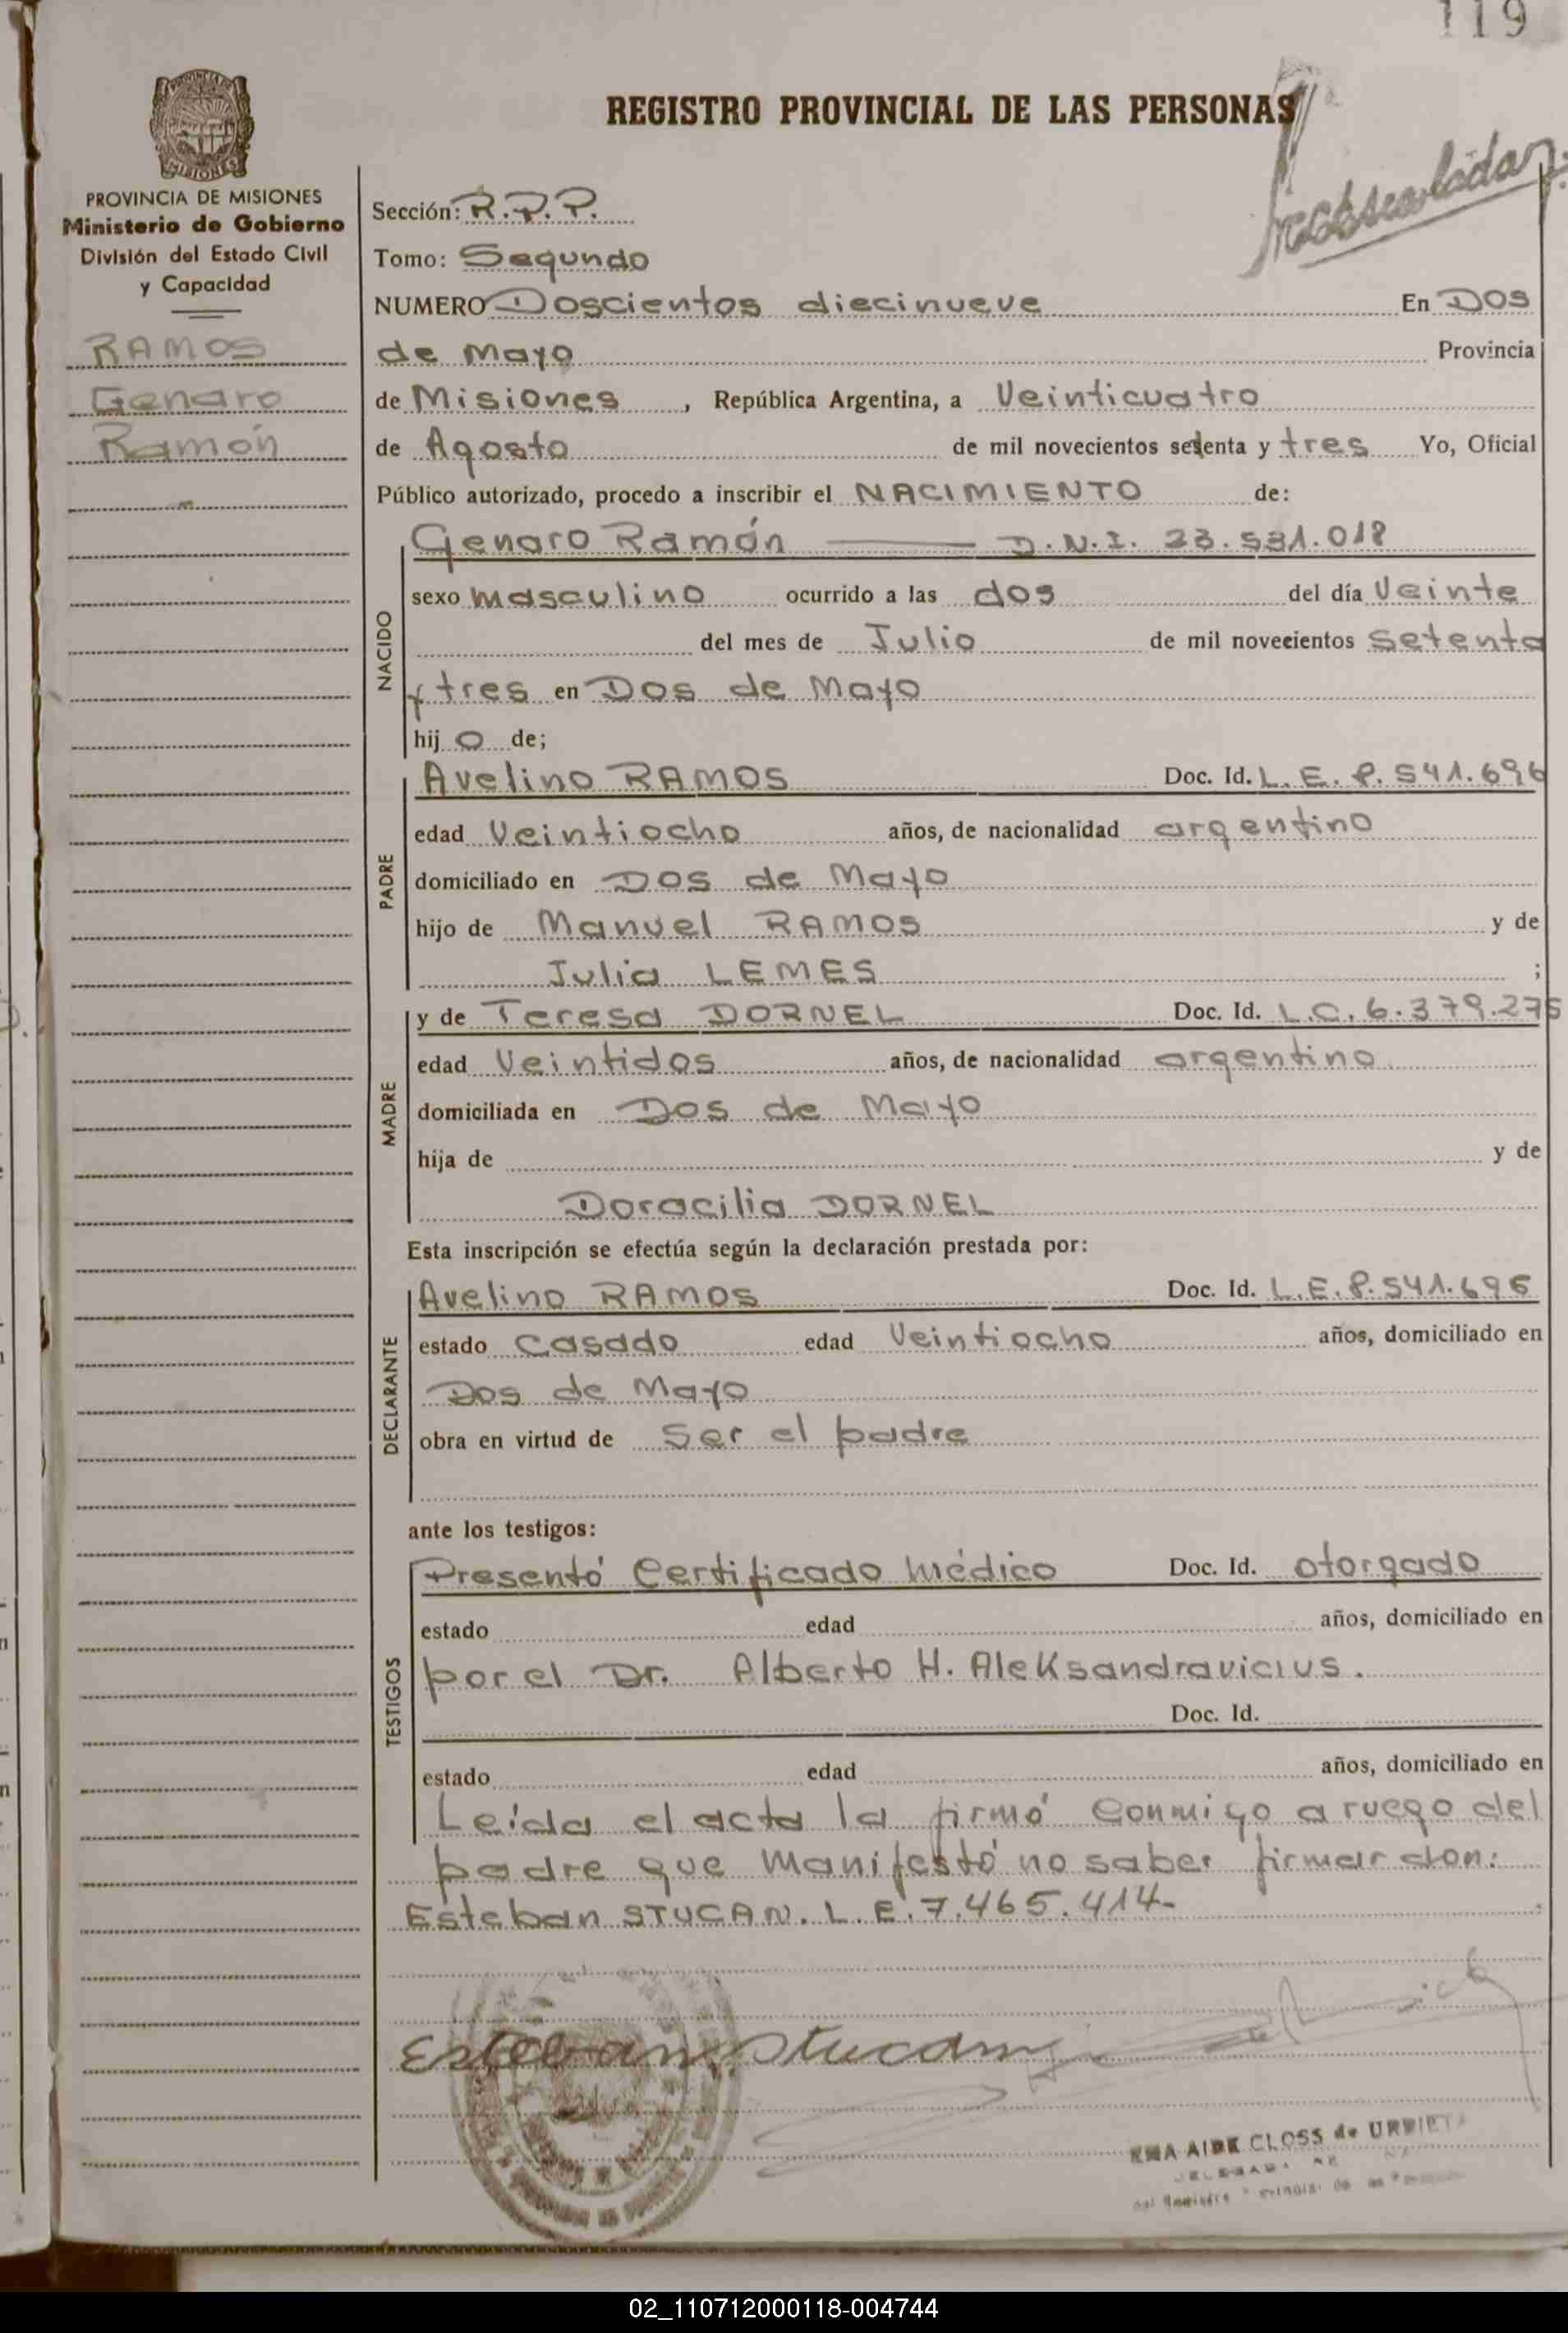 119
REGISTRO PROVINCIAL DE LAS PERSONAS
MISIONES
PROVINCIA DE MISIONES
Ministerio de Gobierno
División del Estado Civil
y Capacidad
RAMOS
Genaro
Ramón
Sección: R.P.P.
Tomo: Segundo
NUMERO Doscientos diecinueve En Dos
de Mayo Provincia
de Misiones, República Argentina, a Veinticuatro
de Agosto de mil novecientos setenta y tres Yo, Oficial
Público autorizado, procedo a inscribir el NACIMIENTO de:
NACIDO
Genaro Ramón D.N.I. 23.531.018
sexo masculino ocurrido a las dos del día Veinte
del mes de Julio de mil novecientos setenta
y tres en Dos de Mayo
hijo de;
PADRE
Avelino RAMOS Doc. Id. L.E. 8.541.696
edad Veintiocho años, de nacionalidad argentino
domiciliado en Dos de Mayo
hijo de Manuel RAMOS y de
Julia LEMES ;
MADRE
y de Teresa DORNEL Doc. Id. L.C. 6.379.275
edad Veintidos años, de nacionalidad argentina
domiciliada en Dos de Mayo
hija de y de
Doracilia DORNEL
Esta inscripción se efectúa según la declaración prestada por:
DECLARANTE
Avelino RAMOS Doc. Id. L.E. 8.541.696
estado Casado edad Veintiocho años, domiciliado en
Dos de Mayo
obra en virtud de ser el padre
ante los testigos:
TESTIGOS
Presentó Certificado Médico Doc. Id. otorgado
estado edad años, domiciliado en
por el Dr. Alberto H. Aleksandravicius.
Doc. Id.
estado edad años, domiciliado en
Leída el acta la firmó conmigo a ruego del
padre que manifestó no saber firmar don:
Esteban STUCAN. L.E. 7.465.414-
Esteban Stucan
CLOSS de
02_110712000118-004744